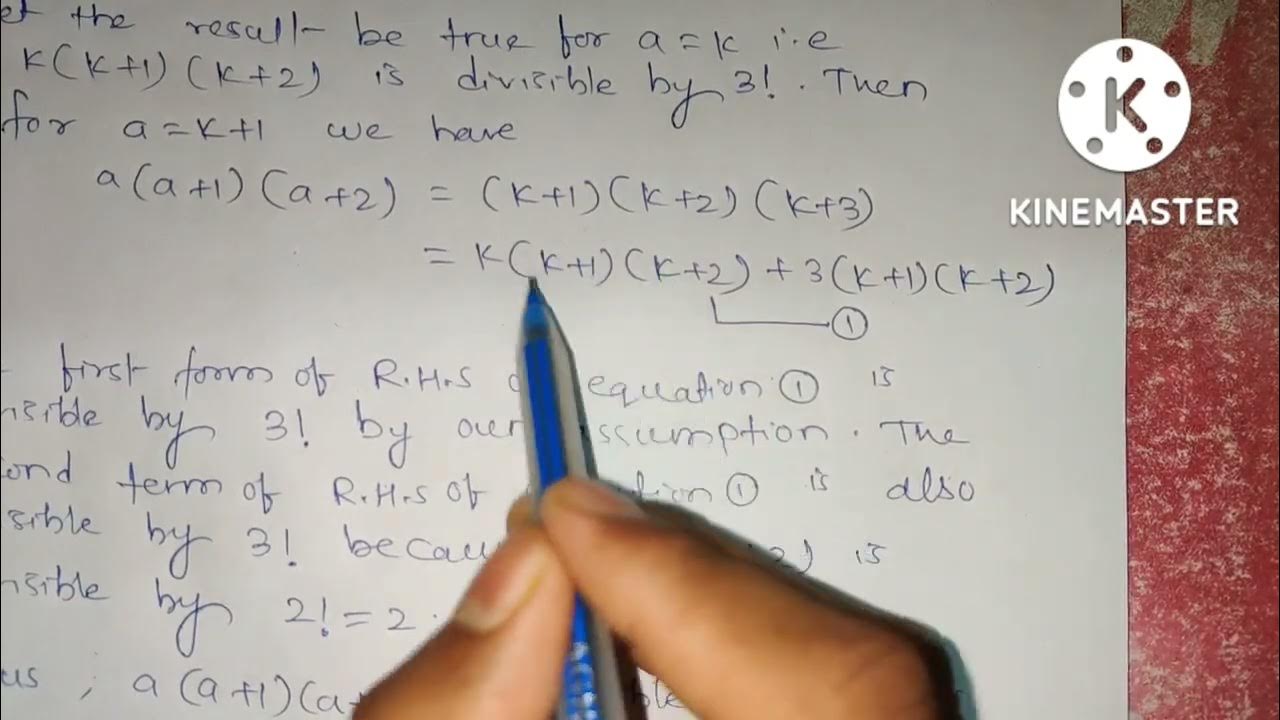 the result be true for a = k i.e
k(k+1)(k+2) is divisible by 3!. Then
for a = k+1 we have
a(a+1)(a+2) = (k+1)(k+2)(k+3)
= k(k+1)(k+2) + 3(k+1)(k+2)
①
first term of R.H.S equation ① is
by 3! by our assumption. The
term of R.H.S of ① is also
by 3! because is
by 2! = 2.
; a(a+1)(a+
KINEMASTER